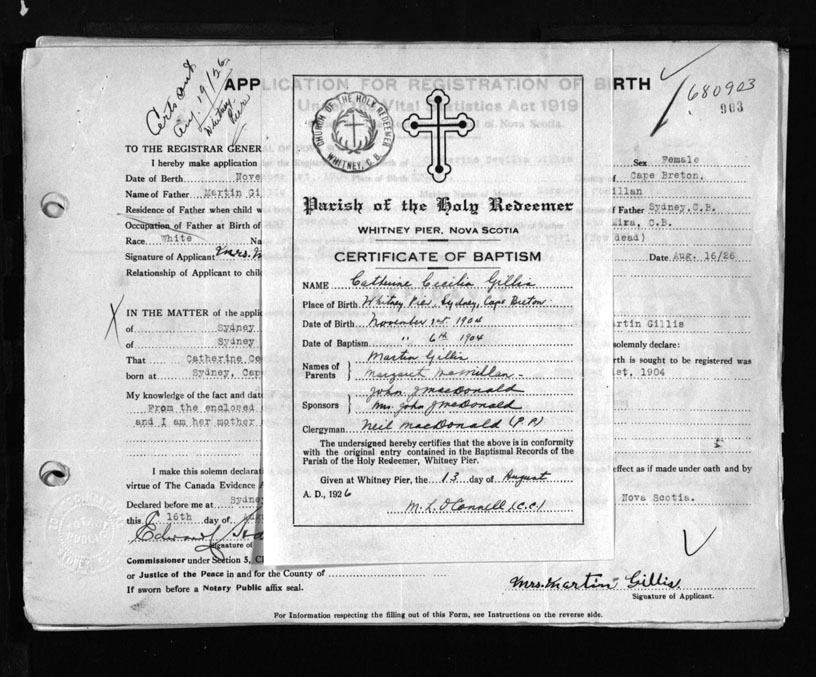 Certs out
Aug 19/26
Whitney
Pier
APPLICATION FOR REGISTRATION OF BIRTH
Under the Vital Statistics Act 1919
of Nova Scotia.
680903
903
TO THE REGISTRAR GENER
I hereby make application
Sex Female
Date of Birth Nove
of Cape Breton.
Name of Father Martin Gi
illan
Residence of Father when child w
f Father Sydney, C.B.
Occupation of Father at Birth of
Mira, C.B.
Race White Na
dead)
Signature of Applicant Mrs. M
Date Aug. 16/26
Relationship of Applicant to chil
IN THE MATTER of the applic
of Sydney
artin Gillis
of Sydney
solemnly declare:
That Catherine Ce
rth is sought to be registered was
born at Sydney, Cap
1st, 1904
My knowledge of the fact and dat
From the enclosed
and I am her mother
I make this solemn declarat
effect as if made under oath and by
virtue of The Canada Evidence A
Declared before me at Sydne
Nova Scotia.
this 16th day of
Signature of
Commissioner under Section 5, C
or Justice of the Peace in and for the County of
If sworn before a Notary Public affix seal.
Mrs. Martin Gillis
Signature of Applicant.
For Information respecting the filling out of this Form, see Instructions on the reverse side.
CHURCH OF THE HOLY REDEEMER
WHITNEY, C.B.
Parish of the Holy Redeemer
WHITNEY PIER, NOVA SCOTIA
CERTIFICATE OF BAPTISM
NAME Catherine Cecilia Gillis
Place of Birth Whitney Pier, Sydney, Cape Breton
Date of Birth November 1st 1904
Date of Baptism " 6th 1904
Names of Parents Martin Gillis
Margaret McMillan
Sponsors John J MacDonald
Mrs. John J McDonald
Clergyman Neil MacDonald (P.P.)
The undersigned hereby certifies that the above is in conformity
with the original entry contained in the Baptismal Records of the
Parish of the Holy Redeemer, Whitney Pier.
Given at Whitney Pier, the 13 day of August
A. D., 1926
M. L. O'Connell (C.C.)